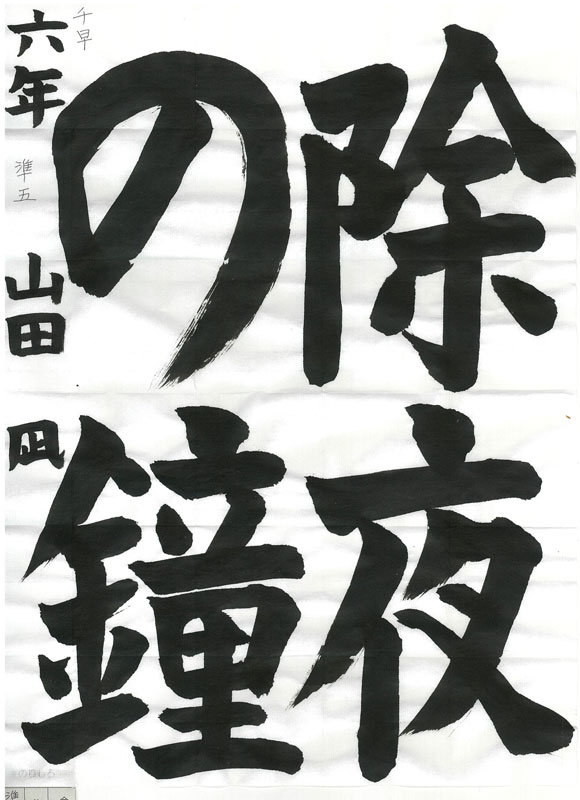 除夜
の鐘
千早
六年 準五 山田 凪